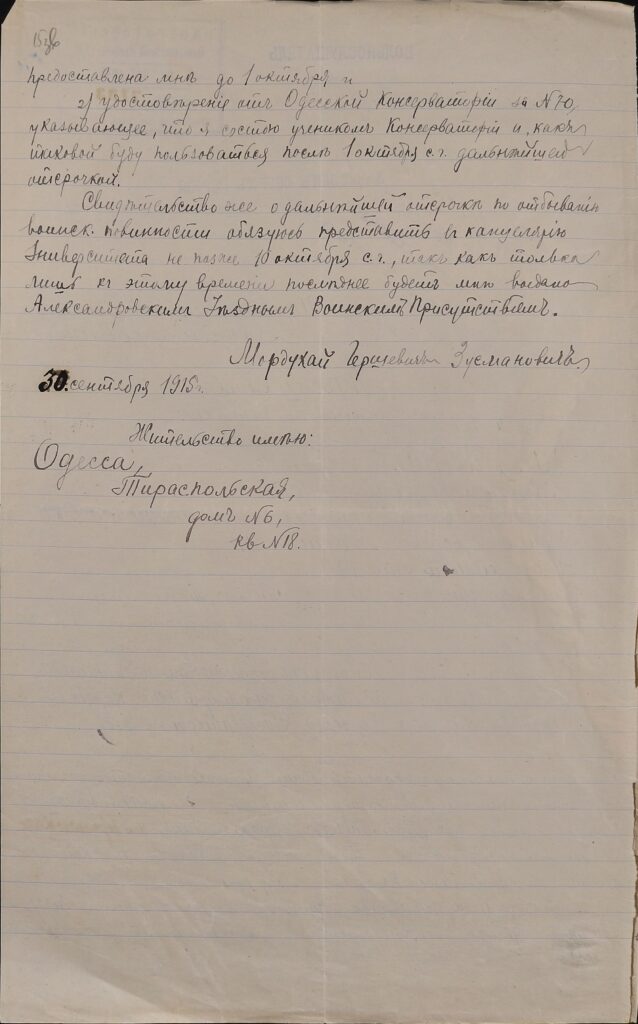 предоставлена мнѣ до 1 октября и
2) удостовѣреніе отъ Одесской Консерваторіи за № 70,
указывающее, что я состою ученикомъ Консерваторіи и, какъ
таковой буду пользоваться послѣ 1 октября с. г. дальнѣйшей
отсрочкой.
Свидѣтельство же о дальнѣйшей отсрочкѣ по отбыванію
воинск. повинности обязуюсь представить въ канцелярію
Университета не позже 10 октября с. г., такъ какъ только
лишь къ этому времени послѣднее будетъ мнѣ выдано
Александровскимъ Уѣзднымъ Воинскимъ Присутствіемъ.
Мордухай Гершевичъ Зусмановичъ.
30 сентября 1915 г.
Жительство имѣю:
Одесса,
Тираспольская,
домъ № 6,
кв № 18.